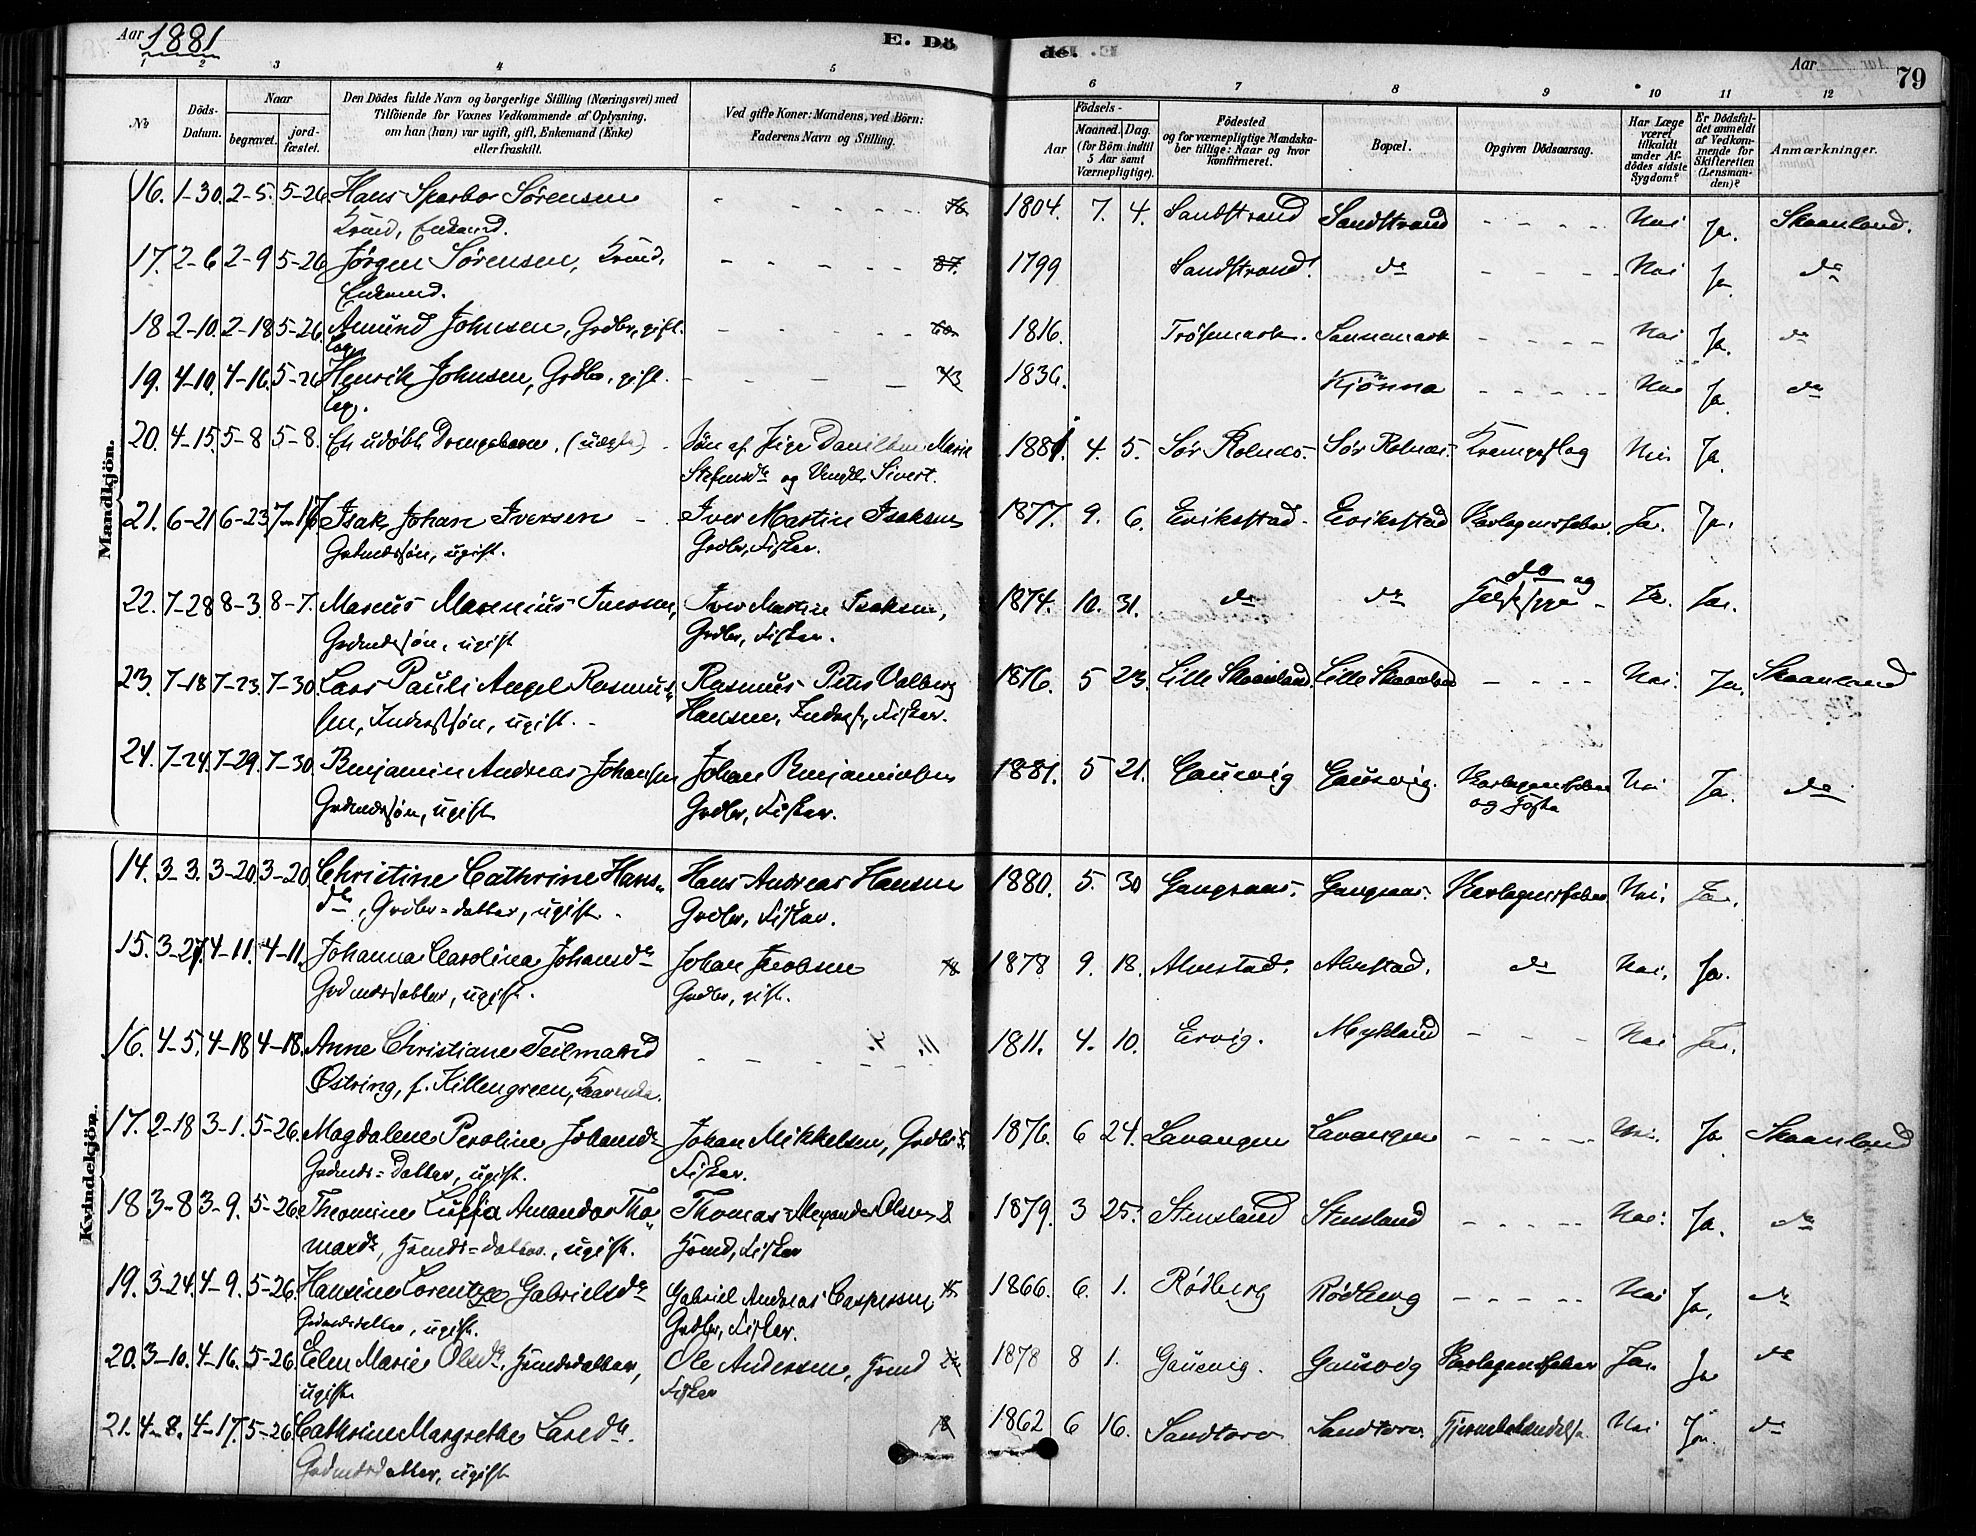 Aar 1881
E. Dö
de.
Aar
79
1 2 3 4 5 6 7 8 9 10 11 12
No
Döds-Datum.
Naar
begravet.
jord-fæstet.
Den Dödes fulde Navn og borgerlige Stilling (Næringsvei) med
Tilföiende for Voxnes Vedkommende af Oplysning,
om han (hun) var ugift, gift, Enkemand (Enke)
eller fraskilt.
Ved gifte Koner: Mandens, ved Börn:
Faderens Navn og Stilling.
Födsels-
Aar
Maaned. Dag.
(for Börn indtil
5 Aar samt
Værnepligtige).
Födested
og for værnepligtige Mandska-
ber tillige: Naar og hvor
konfirmeret.
Bopæl.
Opgiven Dödsaarsag.
Har Læge
været
tilkaldt
under Af-
dödes sidste
Sygdom?
Er Dödsfal-
det anmeldt
af Vedkom-
mende for
Skifteretten
(Lensman-
den)?
Anmærkninger.
Mandkjön.
16. 1-30. 2-5. 5-26. Hans Sparbo Sörensen - - - - - 76 1804. 7. 4. Sandstrand Sandstrand - - - - Nei Ja. Skaanland.
Enkemd.
17. 2-6 2-9 5-26 Jørgen Sørensen, - - - - - 1799 Sandstrand. do - - - - Nei Ja do
Enkemd.
18 2-10. 2-18 5-26. Amund Johnsen, Grdbr, gift. - - - - - 1816. Sannemark - - - - Nei Ja. do
19. 4-10. 4-16. 5-26 Henrik Johnsen, Grdbr. gift. - - - - 43 1836. Kjönna - - - - Nei Ja. do
20. 4-15. 5-8 5-8. Et udøbt Drengebarn. (uægte) Søn af Pige Marie 1881. 4. 5. Sør Rolnes. Sør Rolnes. Krampeslag Nei Ja.
og Ungkl. Sivert.
21. 6-21 6-23 7-17. Isak Johan Iversen - Iver Martin Isaksen 1877. 9. 6. Erikstad. Erikstad Ja. Ja.
Grdmdssøn, ugift. Grdbr, Fisker.
22. 7-28 8-3. 8-7. Marcus Iversen, Iver Martin Isaksen, 1874. 10. 31. do do do og Ja. Ja.
Grdmdssøn, ugift Grdbr, Fisker.
23. 7-18 7-23. 7-30. Lars Pauli Angel Rasmus- Rasmus Peter Valberg 1876. 5 23. Lille Skaanland. Lille Skaanland - - - - Nei. Ja. Skaanland
sen, Inderstsøn, ugift. - Hansen, Inderst, Fisker.
24. 7-24. 7-29. 7-30. Benjamin Andreas Johansen Johan Benjaminsen 1881. 5 21. Gausvig Gausvig. Nei Ja. do
Grdmdssøn, ugift Grdbr, Fisker. og Hoste
Kvindekjön.
14. 3-3. 3-20. 3-20. Christine Cathrine Hans- Hans Andreas Hansen 1880. 5. 30 Gangsaas. Gangsaas. Nei. Ja.
dr, Grdbr=datter, ugift. Grdbr, Fisker.
15. 3-27. 4-11. 4-11. Johanna Carolina Johansdr Johan Jacobsen 1878 9. 18. Alvestad. Alvestad. do Nei. Ja.
Grdmdsdatter, ugift. Grdbr, gift.
16. 4-5. 4-18 4-18. Anne Christiane Teilmand - - - - 1811. 4. 10. Ervig. Mykland - - - Nei Ja.
Östring, f. Killengreen,
17. 2-18 3-1. 5-26. Magdalene Peroline Johansdr Johan Mikkelsen, Grdbr 1876. 6 24. Lavangen Lavangen - - - - Nei. Ja Skaanland
Grdmds=Datter, ugift. Fisker.
18 3-8 3-9. 5-26. Theomine Amanda Tho- Thomas Alexander Olsen 1879. 3 25. Stensland Stensland - - - - Nei. Ja. do
masdr, Hsmds=datter, ugift. Hsmd, Fisker
19. 3-24. 4-9. 5-26. Hansine Lorentze Gabrielsdr Gabriel Andreas Caspersen 1866. 6. 1. Rødberg Rødberg - - - - Nei Ja, do
Grdmdsdatter, ugift. Grdbr, Fisker.
20. 3-10. 4-16. 5-26. Elen Marie Olsdr, Hsmdsdatter, Ole Andersen, Hsmd 1878 8 1. Gausvig. Gausvig Ja. Ja do
ugift Fisker
21. 4-8. 4-17. 5-26 Cathrine Margrethe Larsdr. 18 1862 6 16. Sandtorv Sandtorv. Nei Ja. do
Grdmdsdatter, ugift